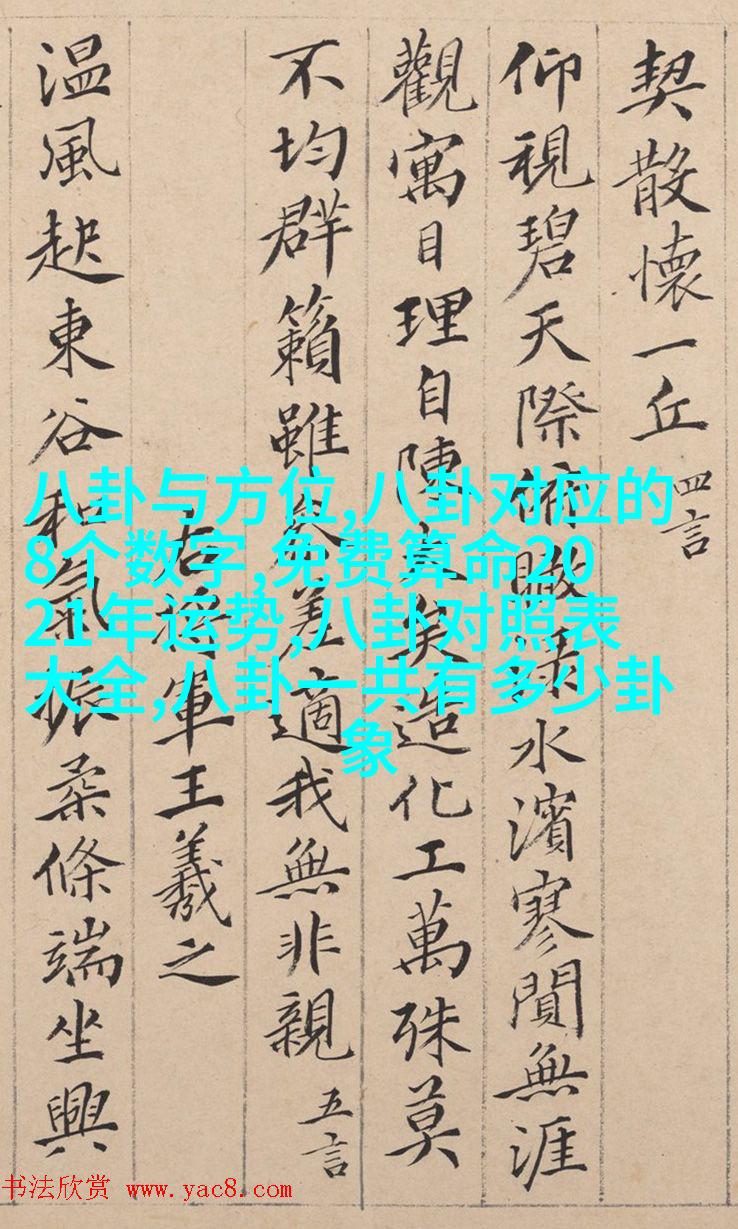 契散懷一丘 四言
仰視碧天際俯瞰淥水濱寥閴無涯
觀寓目理自陳大矣造化工萬殊莫
不均群籟雖参差適我無非親 五言
右將軍王羲之
温風起東谷和氣振柔條端坐興
八卦与方位,八卦对应的
8个数字,免费算命20
21年运势,八卦对照表
大全,八卦一共有多少卦
象
书法欣赏 www.yac8.com